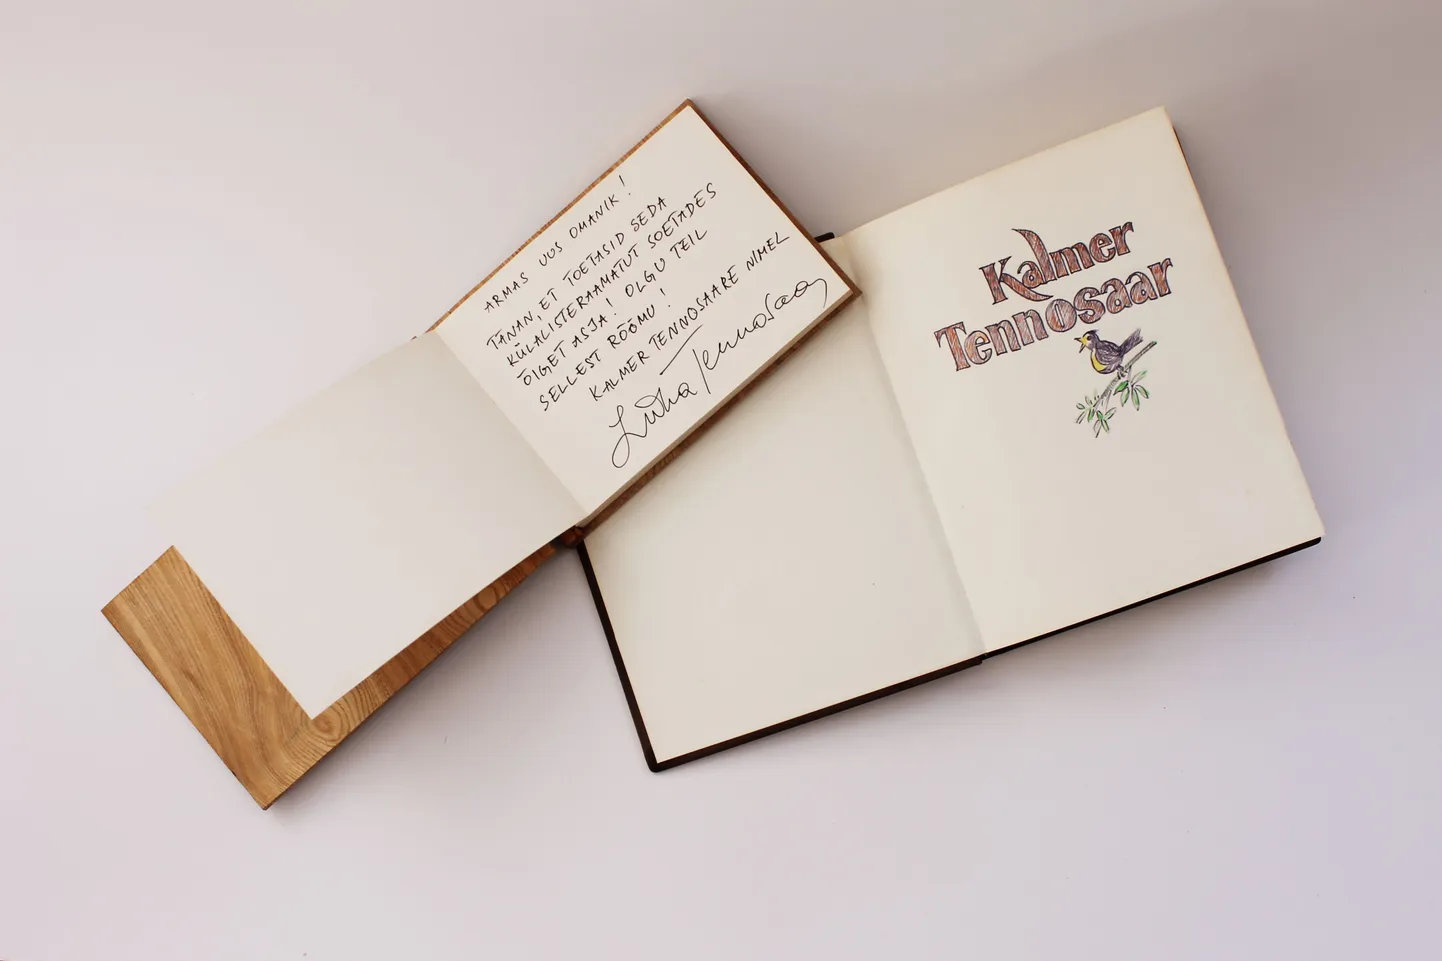 ARMAS UUS OMANIK!
TÄNAN, ET TOETASID SEDA
KÜLALISTERAAMATUT SOETADES
ÕIGET ASJA! OLGU TEIL
SELLEST RÕÕMU!
KALMER TENNOSAARE NIMEL
Tennosaar
Kalmer
Tennosaar